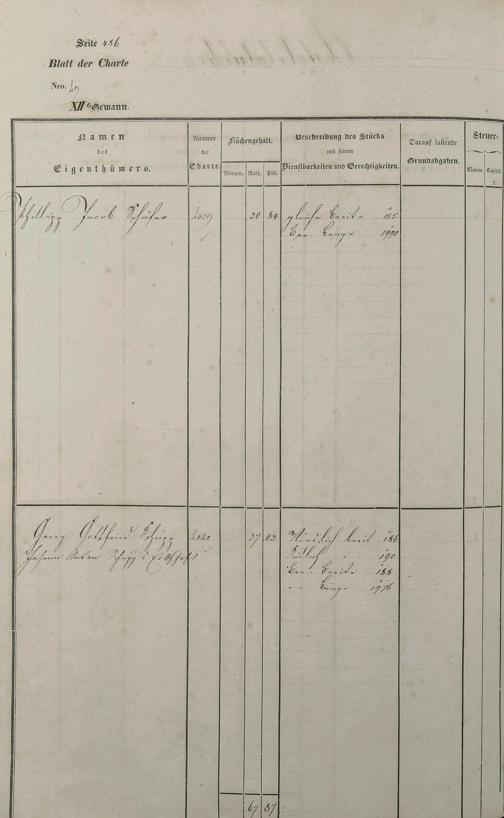 Seite 486.
Blatt der Charte
Nro.
XII te Gewann.
Namen
des
Eigenthümers.
Nummer
der
Charte.
Flächengehalt.
Morgen. Ruth. Fuß.
Beschreibung des Stücks
mit seinen
Dienstbarkeiten und Gerechtigkeiten.
Darauf lastende
Grundabgaben.
Steuer-
Classe. Capital.
Philipp Jacob Schäfer 30 84 gleiche Breite 155
Ger. Länge 1990
Georg Gottfried Schupp 37 03 Nördlich breit 186
Südlich " 190
Ger. Breite 188
" " Länge 1976
67 87